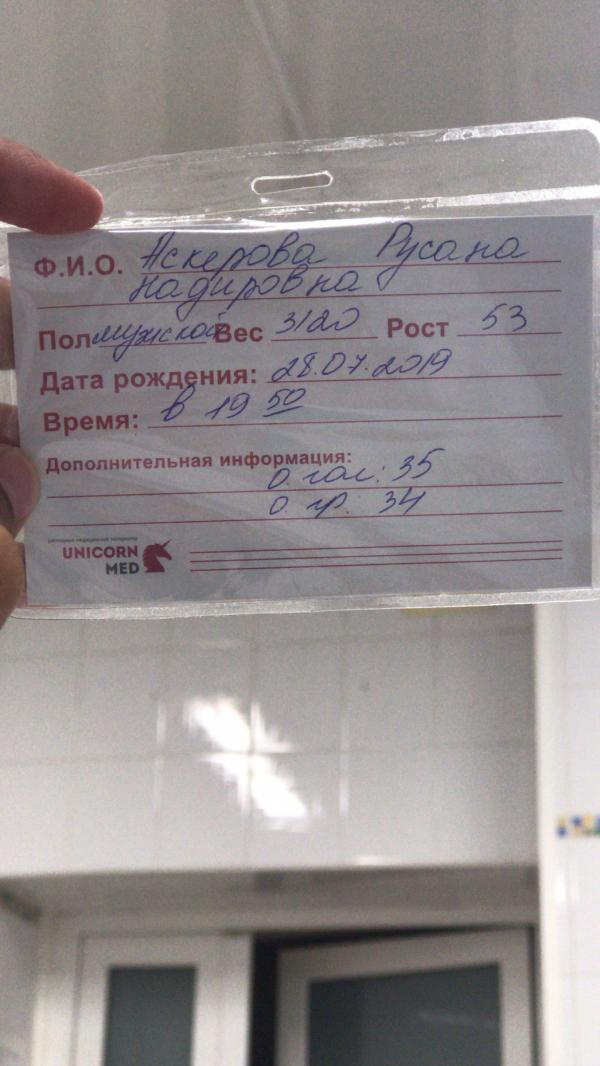 Ф.И.О. Аскерова Русана
Надировна
Пол мужской Вес 3120 Рост 53
Дата рождения: 28.07.2019
Время: в 19 50
Дополнительная информация:
о. гол: 35
о. гр. 34
UNICORN
MED